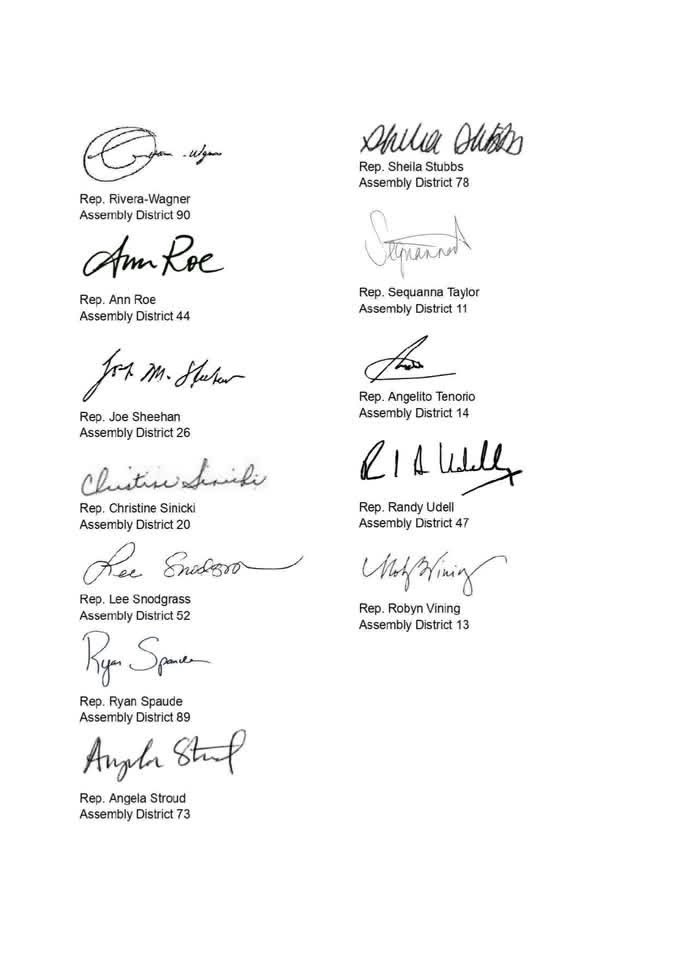 Rep. Rivera-Wagner
Assembly District 90
Ann Roe
Rep. Ann Roe
Assembly District 44
Rep. Joe Sheehan
Assembly District 26
Christine Sinicki
Rep. Christine Sinicki
Assembly District 20
Lee Snodgrass
Rep. Lee Snodgrass
Assembly District 52
Ryan Spaude
Rep. Ryan Spaude
Assembly District 89
Angela Stroud
Rep. Angela Stroud
Assembly District 73
Shelia Stubbs
Rep. Sheila Stubbs
Assembly District 78
Rep. Sequanna Taylor
Assembly District 11
Rep. Angelito Tenorio
Assembly District 14
R I A Udell
Rep. Randy Udell
Assembly District 47
Rep. Robyn Vining
Assembly District 13